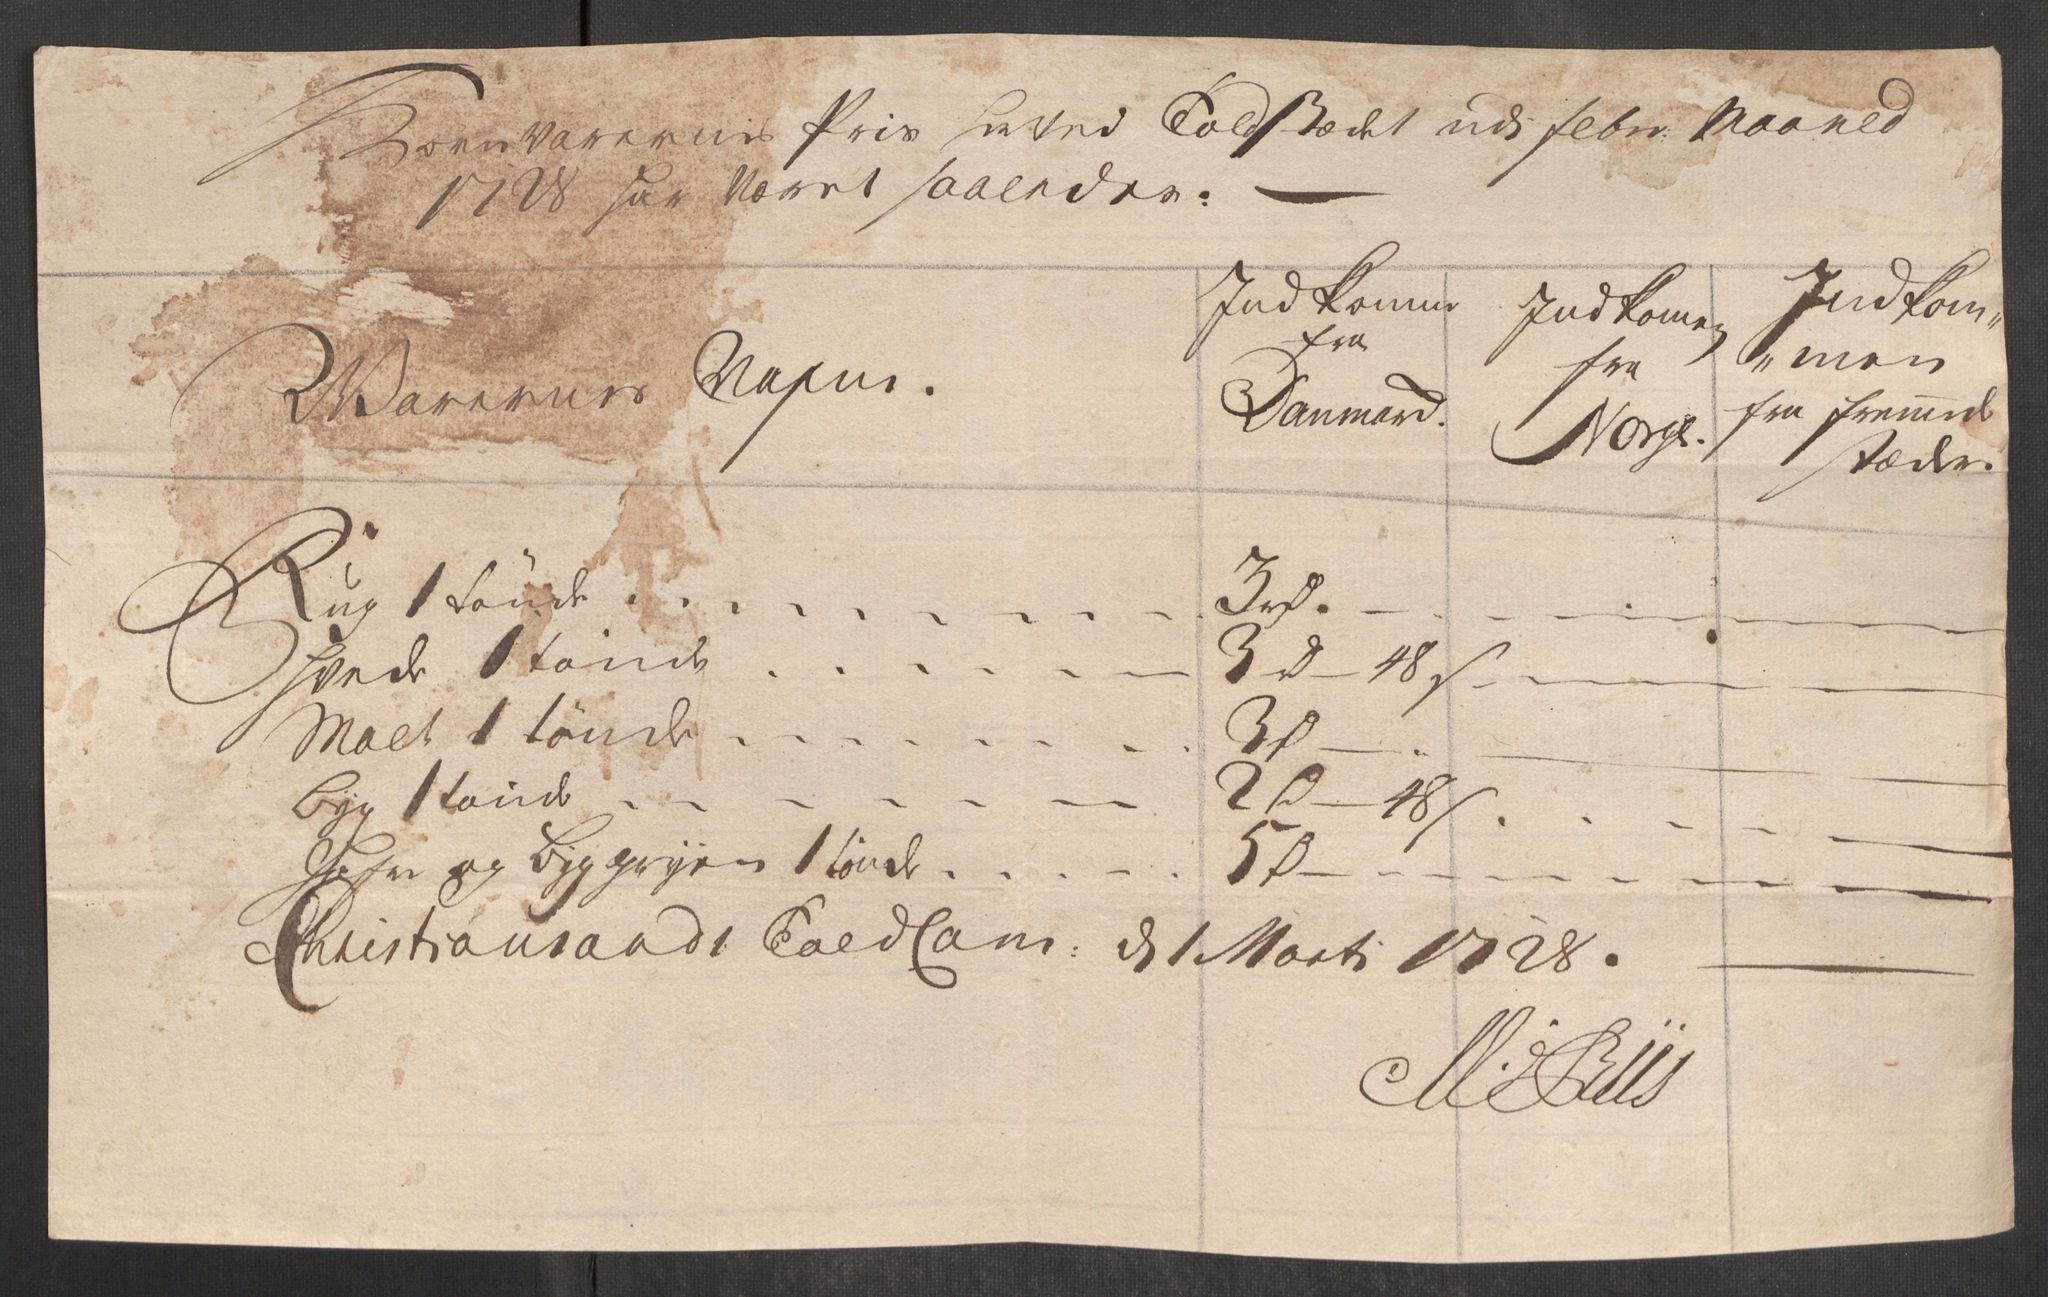 Korn varernis Pris her ved Toldstædet udi febru: Maaned
1728 har været saaledes:
Warernes Nafne.
Ind kommen fra Danmard.
Indkomen fra Norge.
Ind kom= =men fra fremde stæder.
Rug 1 tönde 3 rd.
hvede 1 tönde 3 rd - 48 s
Malt 1 tönde 3 d
Byg 1 tönde 2 d - 48 s
Hafre og byggryn 1 tönde 5 d
Christiansands ToldCam: d 1 Marti 1728.